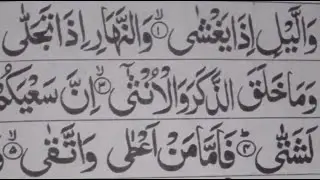 وَالَّيْلِ اِذَا يَغْشٰى ۙ﴿۱﴾ وَالنَّهَارِ اِذَا تَجَلّٰى
وَمَا خَلَقَ الذَّكَرَ وَالْاُنْثٰٓى ۙ﴿۳﴾ اِنَّ سَعْيَكُمْ
لَشَتّٰى ﴿۴﴾ؕ فَاَمَّا مَنْ اَعْطٰى وَاتَّقٰى ۙ﴿۵﴾